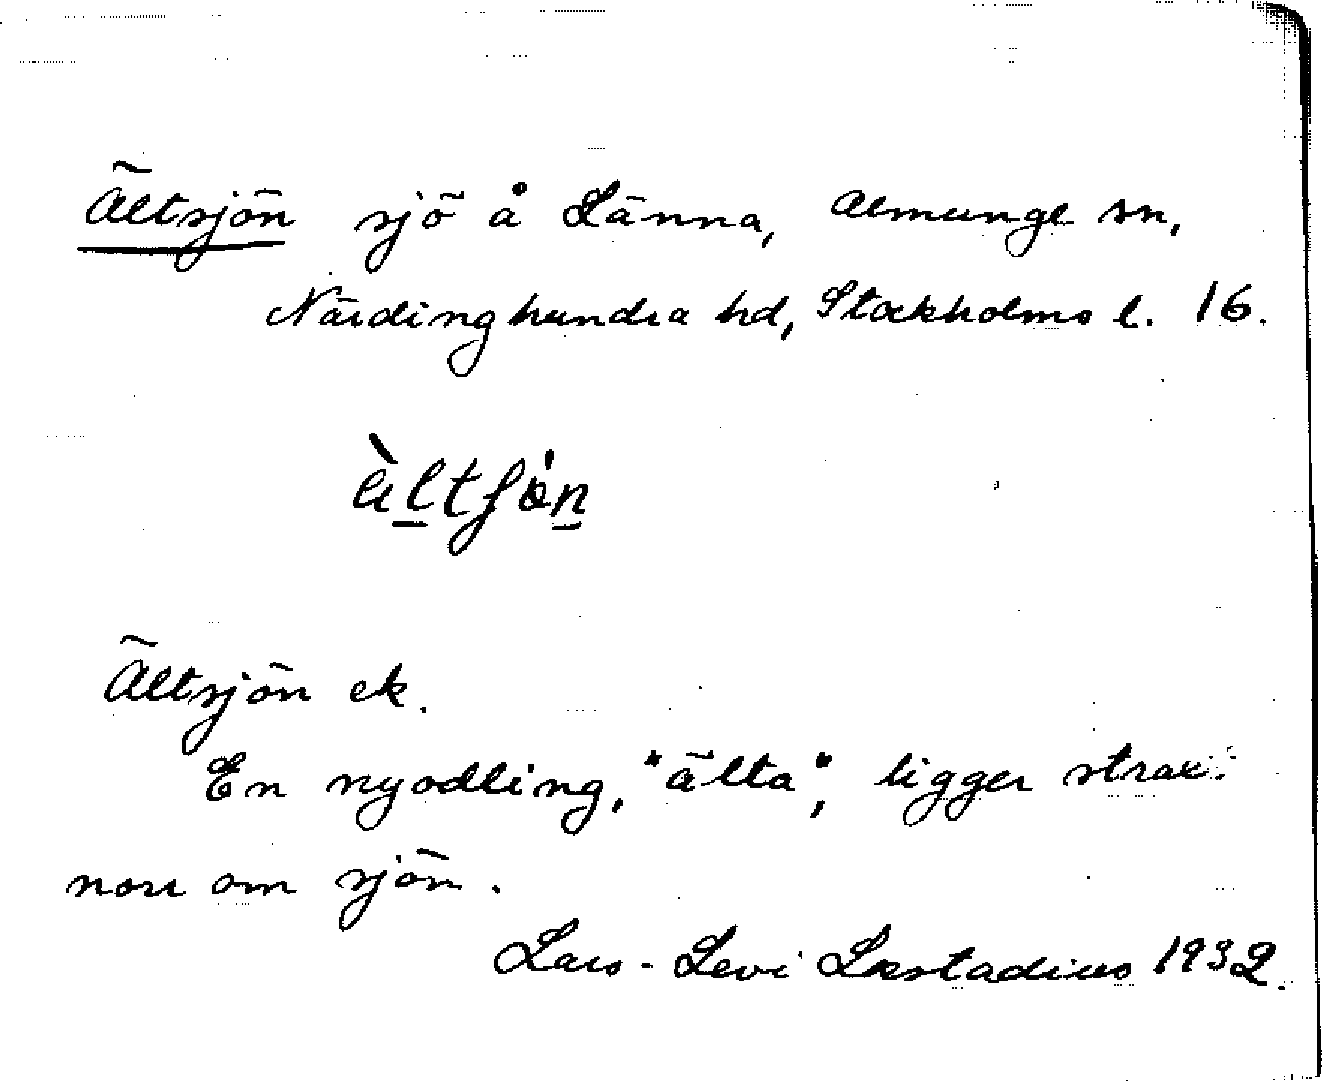 Ältsjön sjö å Länna, Almunge sn,
Närdinghundra hd, Stockholms l. 16.
Ältsjön ek.
En nyodling, "älta", ligger strax
norr om sjön.
Lars-Levi Læstadius 1932.